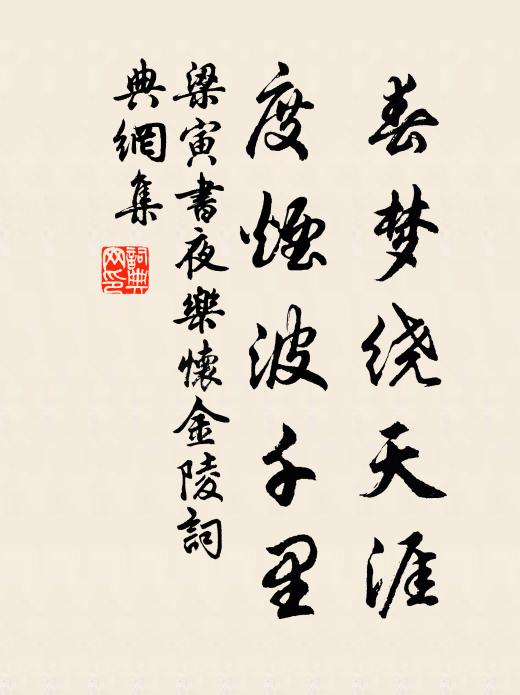 春梦绕天涯
度煙波千里
梁寅書夜樂懷金陵詞
典網集
詞典網印